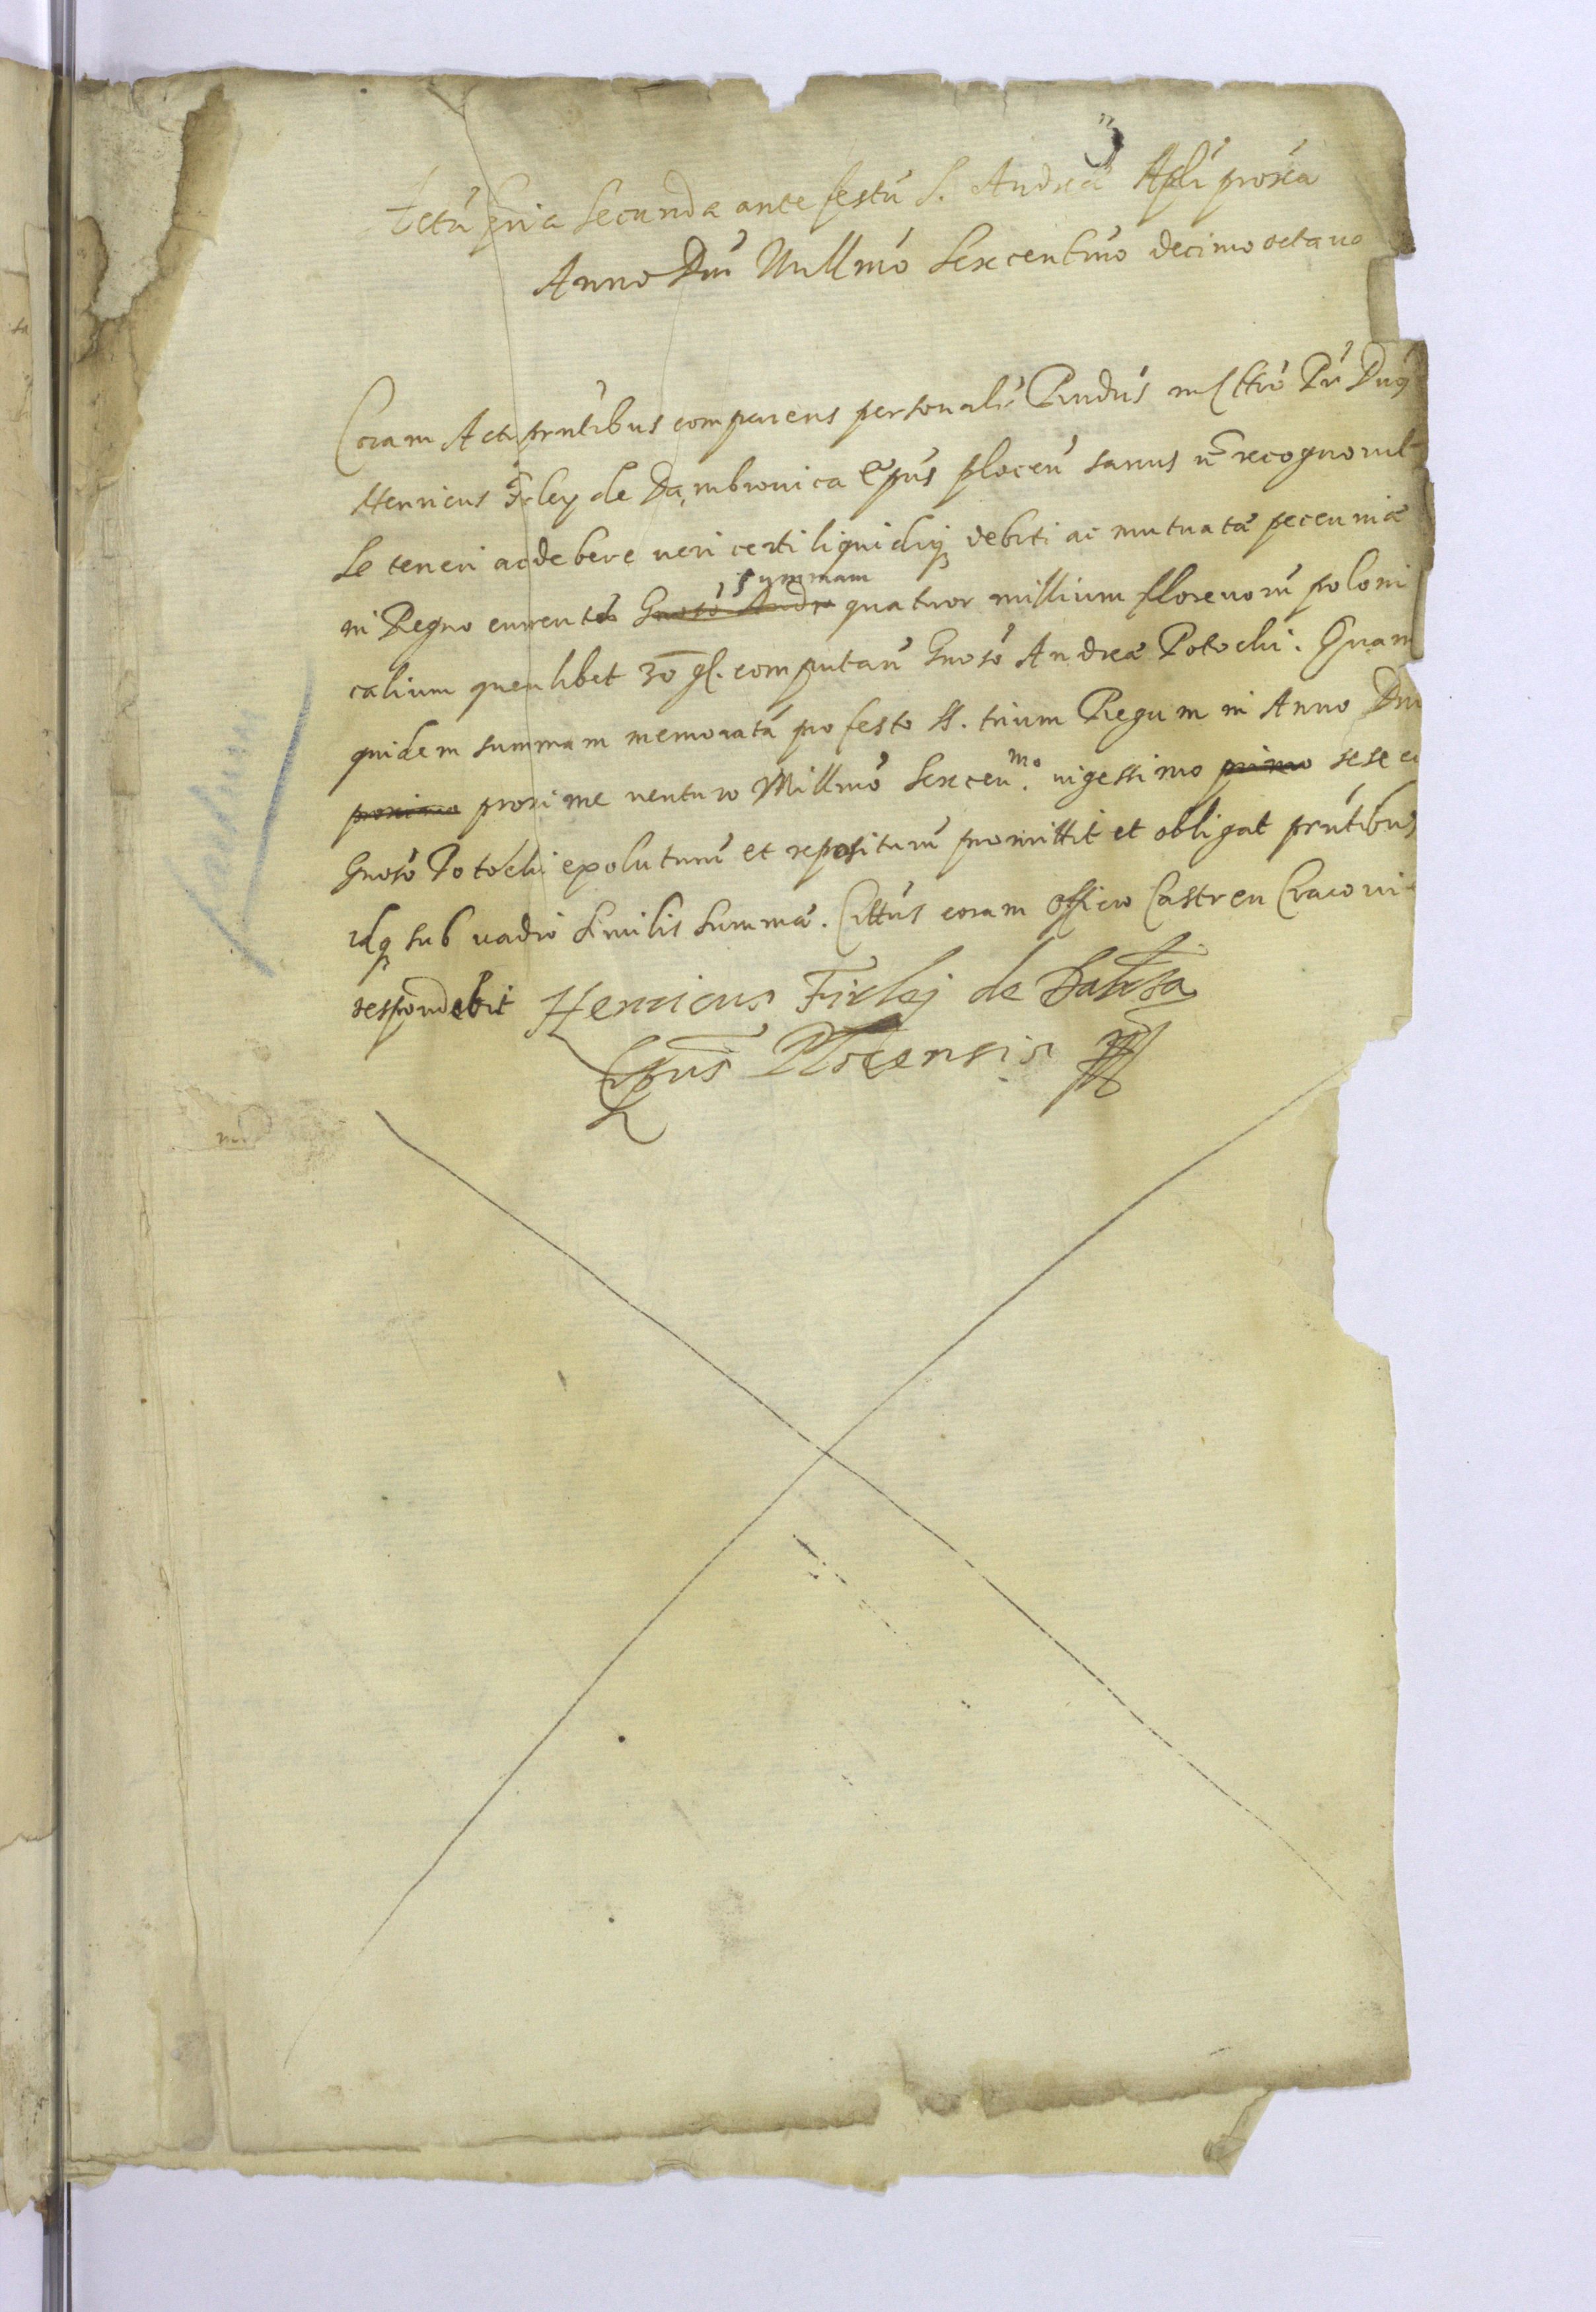 Actū fria Secunda ante festū S. Andreæ Apli proxia
Anno Dni Millmo Sexcentmo decimo octavo
Coram Actis prntibus comparens personalr Rndus in Christo Pr Dnus
Henricus Firley de Dąmbrowica Epus plocen sanus etc recognovit
Se teneri ac debere veri certi liquidiq debiti ac mutuatæ pecuniæ
in Regno currentis Gnoso Andre summam quatuor millium florenorū poloni
calium quenlibet 30 gl. computañ Gnoso Andreæ Potocki. Quam
quidem summam memoratā pro festo SS. trium Regum in Anno Dni
proximo proxime venturo Millmo Sexcenmo. vigessimo primo sese ei
Gnoso Potocki exoluturū et repositurū promittit et obligat prntibus
idq sub vadio similis summæ. Cittus coram officio Castren Cracovi
respondebit Henricus Firlej de Dabrowica
Epus Plocensis